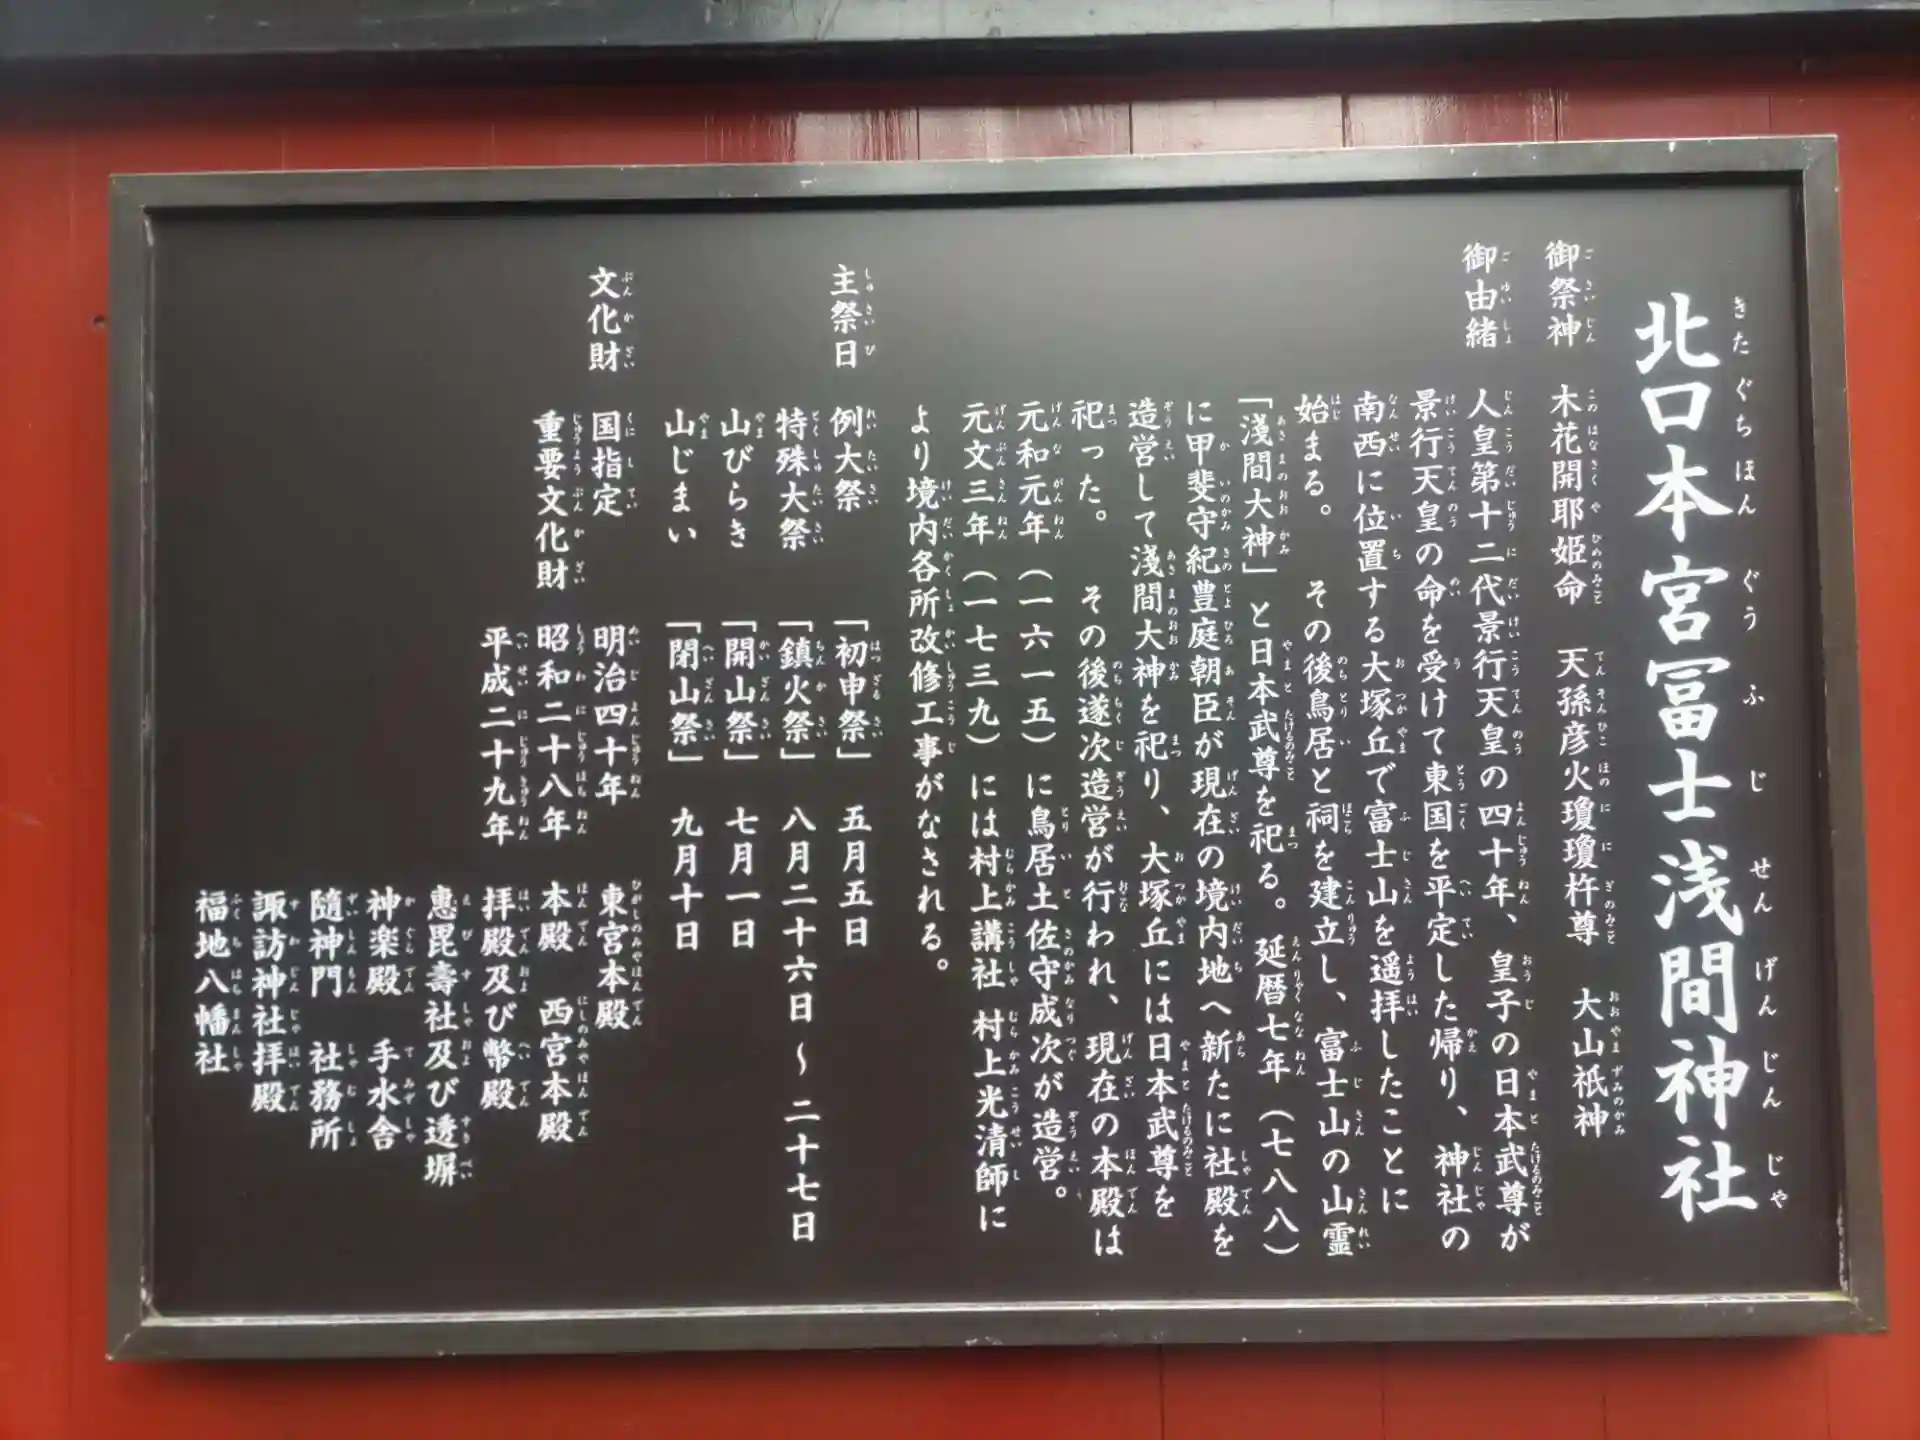 北口本宮冨士浅間神社
御祭神 木花開耶姫命 天孫彦火瓊瓊杵尊 大山祇神
御由緒 人皇第十二代景行天皇の四十年、皇子の日本武尊が
景行天皇の命を受けて東国を平定した帰り、神社の
南西に位置する大塚丘で富士山を遥拝したことに
始まる。 その後鳥居と祠を建立し、富士山の山霊
「淺間大神」と日本武尊を祀る。延暦七年（七八八）
に甲斐守紀豊庭朝臣が現在の境内地へ新たに社殿を
造営して淺間大神を祀り、大塚丘には日本武尊を
祀った。 その後遂次造営が行われ、現在の本殿は
元和元年（一六一五）に鳥居土佐守成次が造営。
元文三年（一七三九）には村上講社 村上光清師に
より境内各所改修工事がなされる。
主祭日 例大祭 「初申祭」 五月五日
特殊大祭 「鎮火祭」 八月二十六日～二十七日
山びらき 「開山祭」 七月一日
山じまい 「閉山祭」 九月十日
文化財 国指定 明治四十年 東宮本殿
重要文化財 昭和二十八年 本殿 西宮本殿
平成二十九年 拝殿及び幣殿
惠毘壽社及び透塀
神楽殿 手水舎
隨神門 社務所
諏訪神社拝殿
福地八幡社